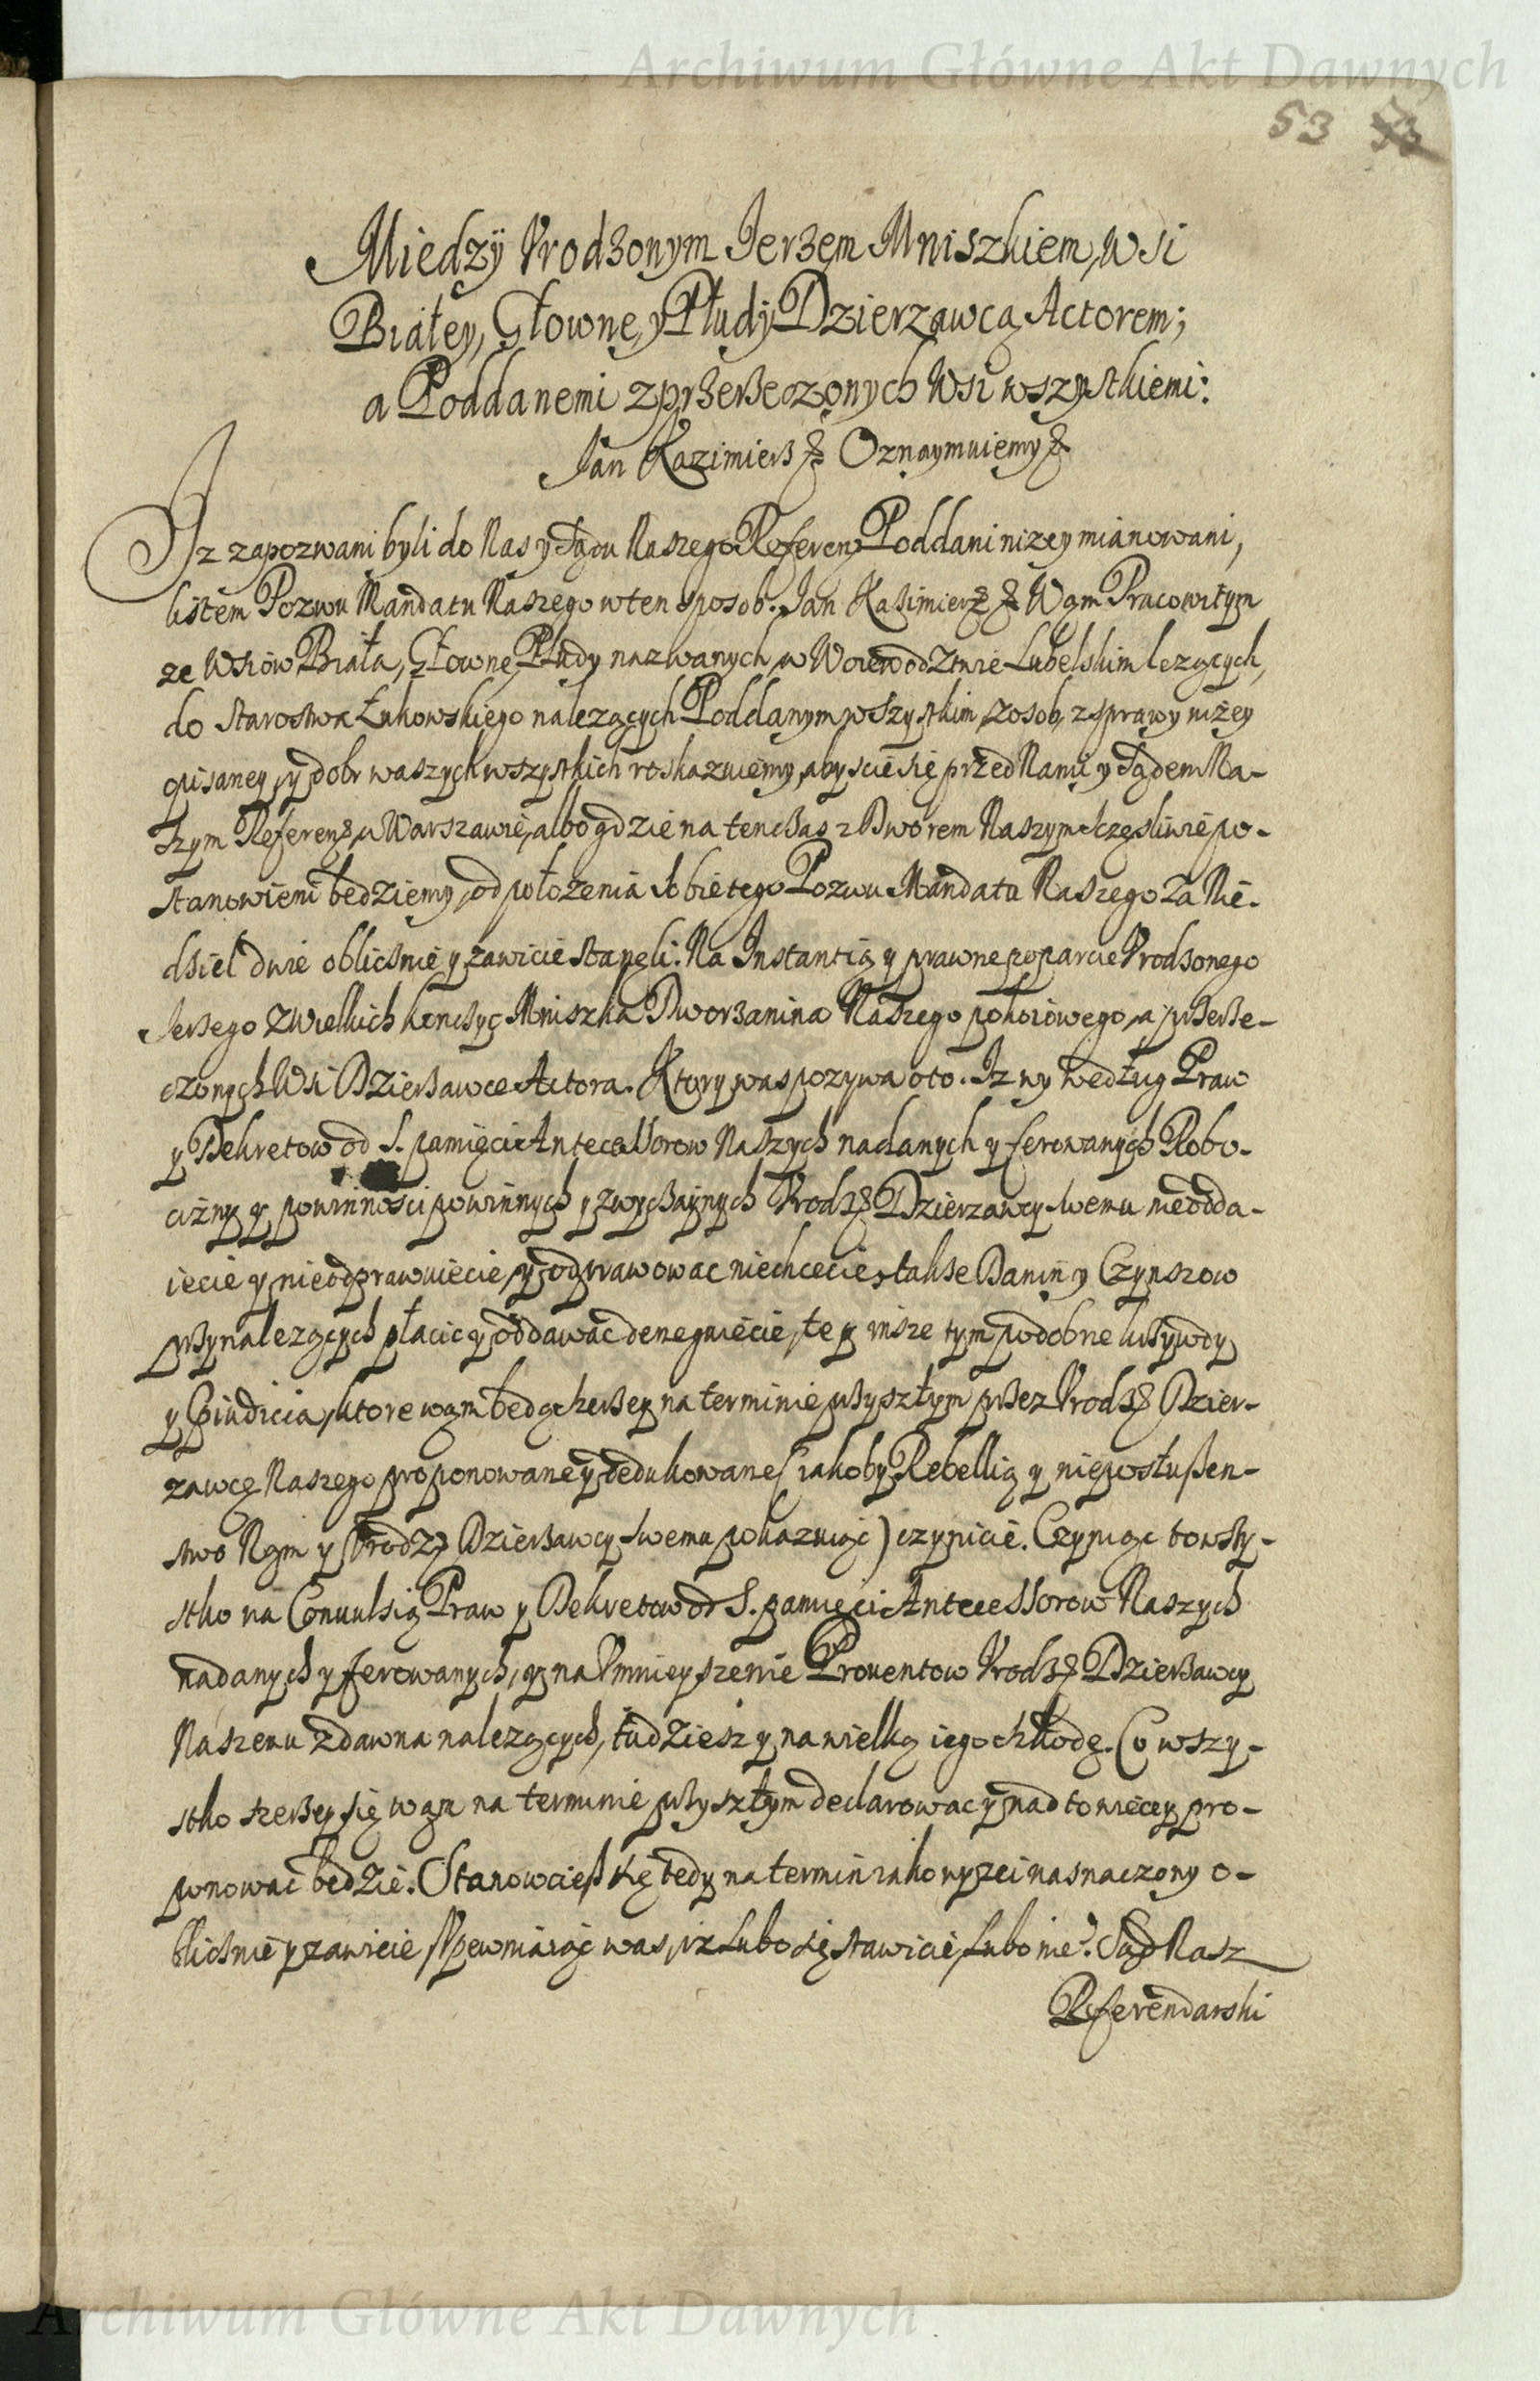 Archiwum Główne Akt Dawnych
53
Miedzÿ Vrodzonym Jerzem Mniszkiem, wsi
Białey, Głowne, y Płudÿ Dzierzawcą Actorem;
a Poddanemi zprzerzeczonych Wsi wszystkiemi:
Jan Kazimierz & Oznaymuiemy &
Iz zapozwani byli do Nas y Sądu Naszego Referen Poddani nizey mianowani,
listem Pozwu Mandatu Naszego w ten sposob. Jan Kazimierz & Wam Pracowitym
ze Wsiow Biała, Głowne, Płudy nazwanych, w Woiewodztwie Lubelskim lezących,
do Starostwa Łukowskiego nalezących Poddanym wszystkim, z osob, z sprawy niżey
opisaney, y dobr waszych wszystkich roskazuiemy, abyscie się przed Nami y Sądem Na-
szym Referenz, w Warszawie, albo gdzie na tenczas z Dworem Naszym szczęsliwie po-
stanowieni będziemy, od połozenia sobie tego Pozwu Mandatu Naszego za Nie-
dziel dwie oblicznie y zawicie stanęli. Na Instantią y prawne poparcie Vrodzonego
Jerzego z Wielkich Kończyc Mniszka Dworzanina Naszego pokoiowego, a przerze-
czonych Wsi Dzierzawce Actora. Ktory was pozywa oto. Iz wy według Praw
y Dekretow od S. pamięci Antecessorow Naszych nadanych y ferowanych Robo-
cizny y powinnosci powinnych y zwyczaÿnych Vrodz& Dzierzawcy swemu nie odda-
iecie y nieodprawuiecie, y odprawowac niechcecie, takze Danin y Czynszow
przynalezących płacic y oddawac denegniecie, te y insze tym podobne krzywdy
y Pręiudicia, ktore wam będą szerzey na terminie przyszłym przez Vrodz& Dzier-
zawcę Naszego proponowane y dedukowane (iakoby Rebellią y nieposłuszen-
stwo Nam y Vrodz& Dzierzawcy swemu pokazuiąc) czynicie. Czyniąc to wszy-
stko na Conuulsią Praw y Dekretow od S. pamięci Antecessorow Naszych
nadanych y ferowanych, y na Vmnieyszenie Prouentow Vrodz& Dzierzawcy
Naszemu zdawna nalezących, tudziesz y na wielką iego szkodę. Co wszy-
stko szerzey się wam na terminie przyszłym declarowac y nad to więcey pro-
ponowac będzie. Stanowciesz się tedy na termin iako wyzei naznaczony o-
blicznie y zawicie, Vpewniaiąc was, iz Lubo się stawicie, Lubo nie. Sąd Nasz
Referendarski
Archiwum Główne Akt Dawnych